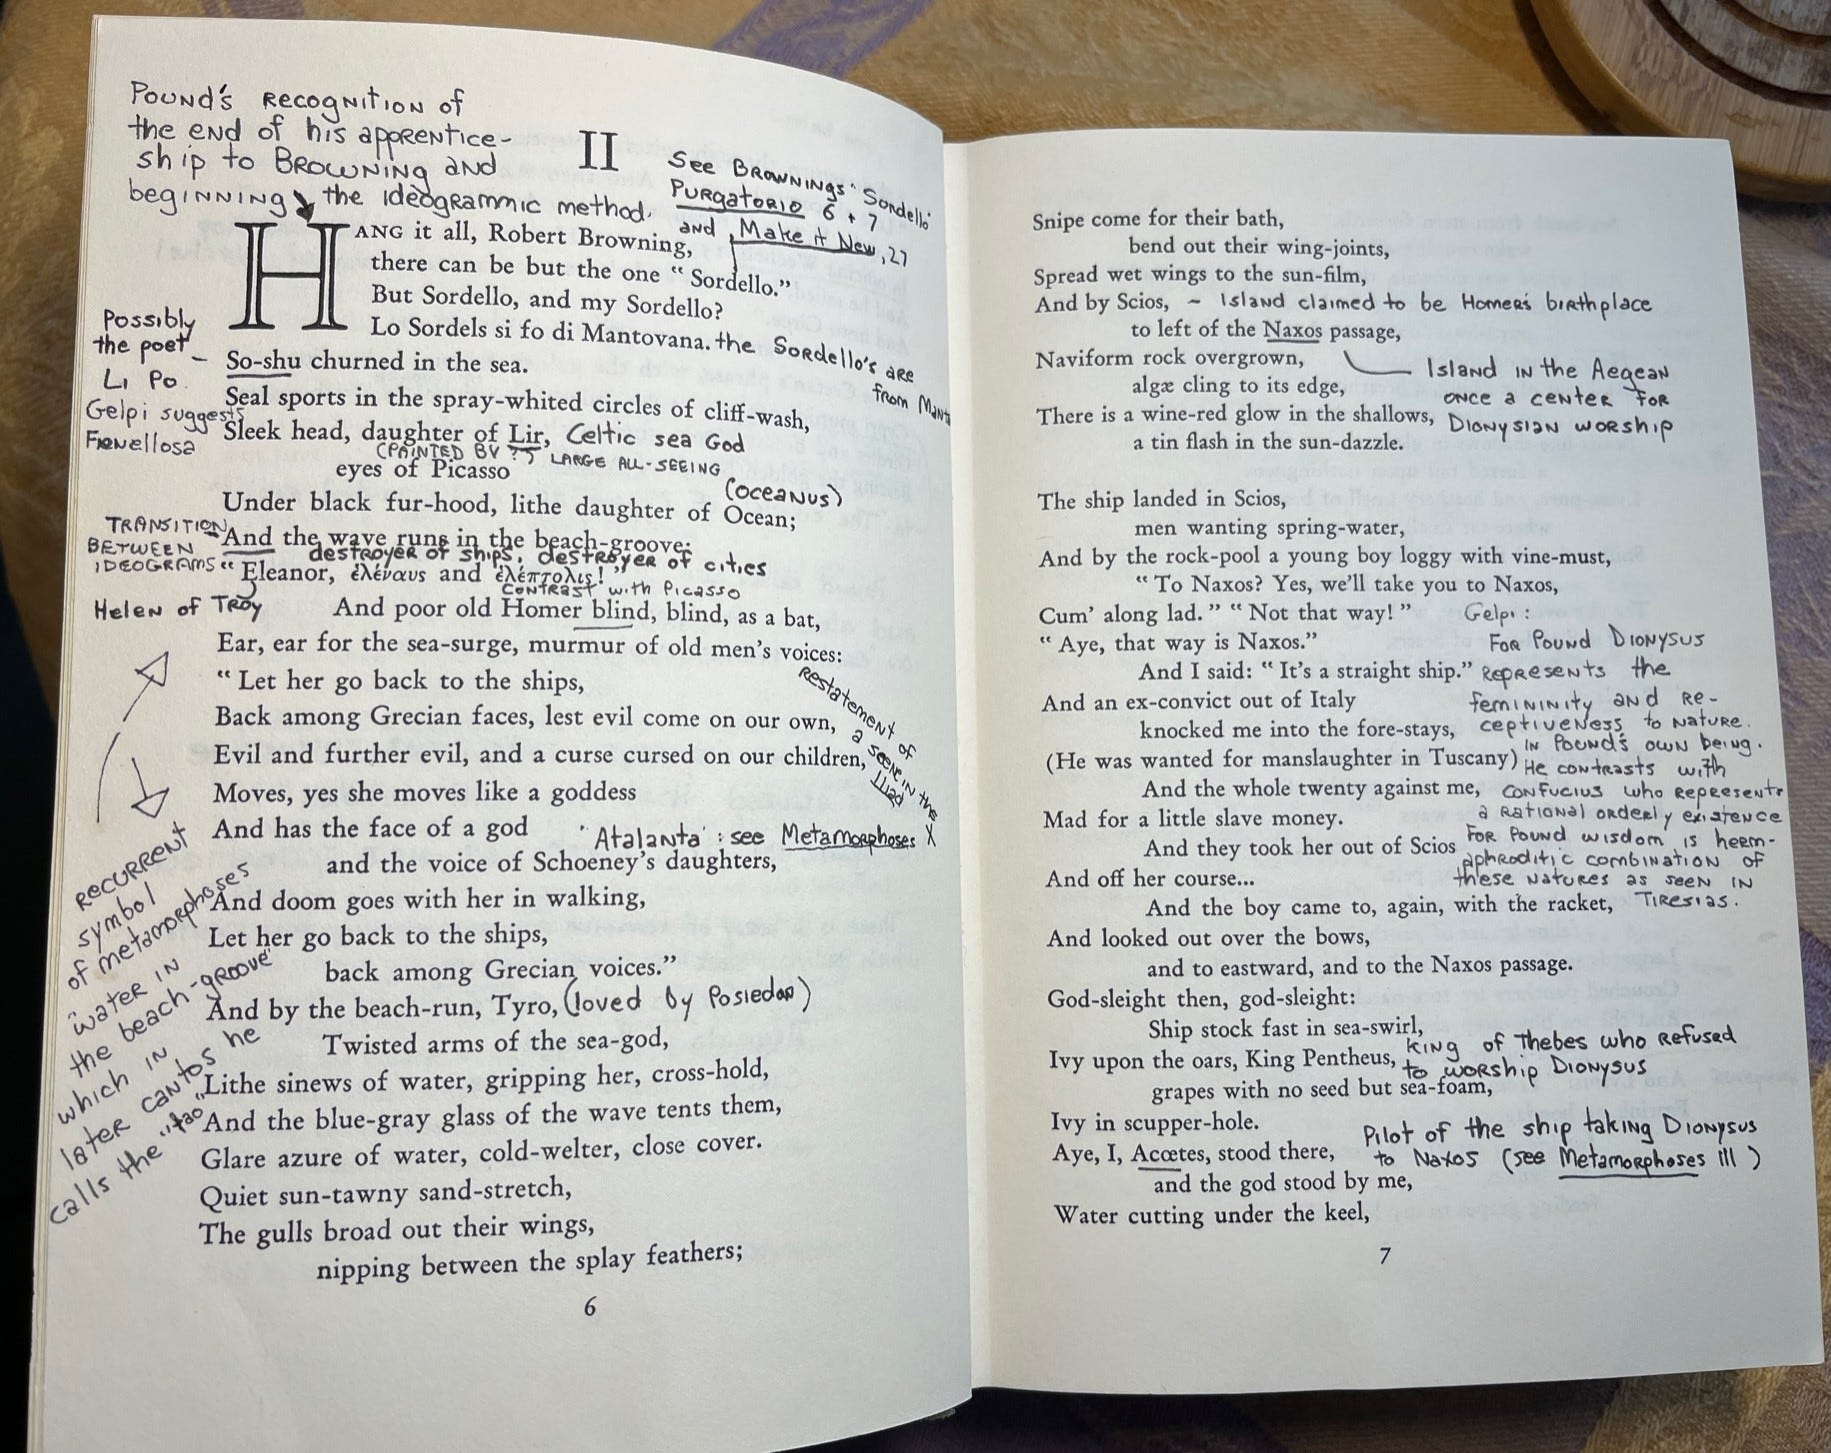 Pound's recognition of
the end of his apprentice-
ship to Browning and
beginning the ideogrammic method.
II
See Brownings "Sordello"
Purgatorio 6 + 7
and Make it New, 27
HANG it all, Robert Browning,
there can be but the one "Sordello."
But Sordello, and my Sordello?
Lo Sordels si fo di Mantovana.
the Sordello's are
from
Possibly
the poet –
Li Po.
Gelpi suggests
Fenellosa
So-shu churned in the sea.
Seal sports in the spray-whited circles of cliff-wash,
Sleek head, daughter of Lir,
Celtic sea God
(PAINTED BY ??)
LARGE ALL-SEEING
eyes of Picasso
(OCEANUS)
Under black fur-hood, lithe daughter of Ocean;
TRANSITION
BETWEEN
IDEOGRAMS
And the wave runs in the beach-groove:
destroyer of ships, destroyer of cities
"Eleanor, ἑλέναυς and ἑλέπτολις!"
contrast with Picasso
Helen of Troy
And poor old Homer blind, blind, as a bat,
Ear, ear for the sea-surge, murmur of old men's voices:
"Let her go back to the ships,
Back among Grecian faces, lest evil come on our own,
Evil and further evil, and a curse cursed on our children,
Moves, yes she moves like a goddess
And has the face of a god
restatement of
a scene in the
Iliad
'Atalanta' : see Metamorphoses X
and the voice of Schoeney's daughters,
And doom goes with her in walking,
Let her go back to the ships,
back among Grecian voices."
And by the beach-run, Tyro,
(loved by Posiedon)
Twisted arms of the sea-god,
Lithe sinews of water, gripping her, cross-hold,
And the blue-gray glass of the wave tents them,
Glare azure of water, cold-welter, close cover.
Quiet sun-tawny sand-stretch,
The gulls broad out their wings,
nipping between the splay feathers;
recurrent
symbol
of metamorphoses
"water in
the beach-groove"
which in
later cantos he
calls the "tao"
6
Snipe come for their bath,
bend out their wing-joints,
Spread wet wings to the sun-film,
And by Scios,
~ Island claimed to be Homer's birthplace
to left of the Naxos passage,
Naviform rock overgrown,
algæ cling to its edge,
There is a wine-red glow in the shallows,
a tin flash in the sun-dazzle.
Island in the Aegean
once a center for
Dionysian worship
The ship landed in Scios,
men wanting spring-water,
And by the rock-pool a young boy loggy with vine-must,
"To Naxos? Yes, we'll take you to Naxos,
Cum' along lad." "Not that way!"
"Aye, that way is Naxos."
And I said: "It's a straight ship."
And an ex-convict out of Italy
knocked me into the fore-stays,
(He was wanted for manslaughter in Tuscany)
And the whole twenty against me,
Mad for a little slave money.
And they took her out of Scios
And off her course...
And the boy came to, again, with the racket,
Gelpi:
For Pound Dionysus
represents the
femininity and re-
ceptiveness to nature.
in Pound's own being.
He contrasts with
Confucius who represents
a rational orderly existence
For Pound wisdom is heerm-
aphroditic combination of
these natures as seen in
Tiresias.
And looked out over the bows,
and to eastward, and to the Naxos passage.
God-sleight then, god-sleight:
Ship stock fast in sea-swirl,
Ivy upon the oars, King Pentheus,
King of Thebes who refused
to worship Dionysus
grapes with no seed but sea-foam,
Ivy in scupper-hole.
Aye, I, Acœtes, stood there,
Pilot of the ship taking Dionysus
to Naxos (see Metamorphoses III)
and the god stood by me,
Water cutting under the keel,
7